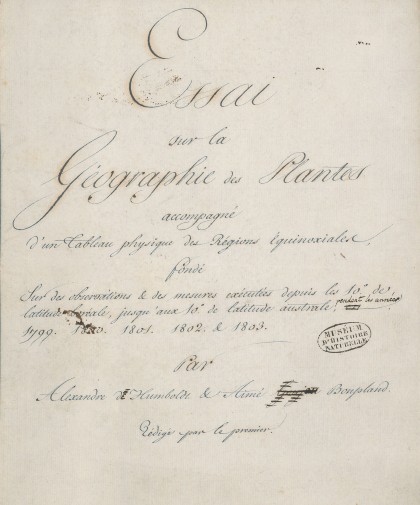 Essai
sur la
Géographie des Plantes
accompagné
d'un Tableau physique des Régions équinoxiales,
fondé
Sur des observations & des mesures exécutées depuis les 10.e de
latitude boréale, jusqu'aux 10.e de latitude australe, pendant les années
1799. 1800. 1801. 1802. & 1803.
MUSÉUM
D'HISTOIRE
NATURELLE
Par
Alexandre de Humboldt & Aimé Bonpland.
Rédigé par le premier.